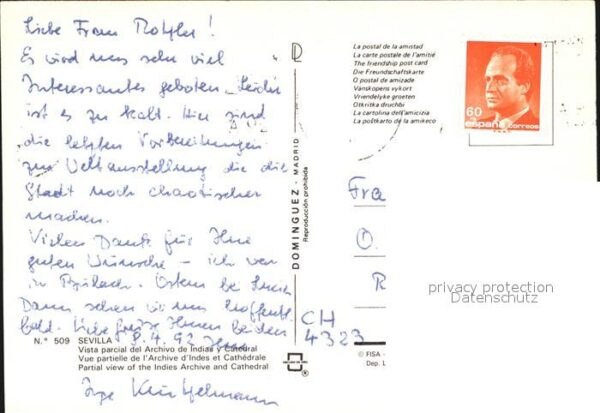 Liebe Frau
Es wird uns sehr viel
Interessantes geboten. Leider
ist es zu kalt. Hier sind
die letzten Vorbereitungen
zur Weltausstellung die die
Stadt noch chaotischer
machen.
Vielen Dank für Ihre
guten Wünsche – ich war
in Bülach. Ostern bei
Dann sehen wir uns hoffentl.
bald. Liebe Grüsse Ihnen beiden
.4.92 Ihre
Inge
N.º 509 SEVILLA
Vista parcial del Archivo de Indias y Catedral
Vue partielle de l'Archive d'Indes et Cathédrale
Partial view of the Indies Archive and Cathedral
DOMINGUEZ - MADRID
Reproducción prohibida
La postal de la amistad
La carte postale de l'amitié
The friendship post card
Die Freundschaftskarte
O postal de amizade
Vänskapens vykort
Vriendelyke groeten
Otkritka druchbi
La cartolina dell'amicizia
La poŝtkarto de la amikeco
60
españa correos
Fra
O.
R
CH
4323
privacy protection
Datenschutz
© FISA -
Dep. L